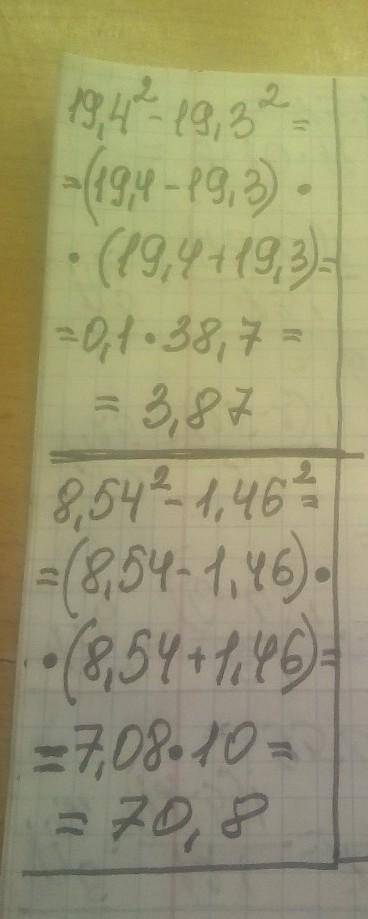 19,4² - 19,3² =
= (19,4 - 19,3) ·
· (19,4 + 19,3) =
= 0,1 · 38,7 =
= 3,87
8,54² - 1,46² =
= (8,54 - 1,46) ·
· (8,54 + 1,46) =
= 7,08 · 10 =
= 70,8